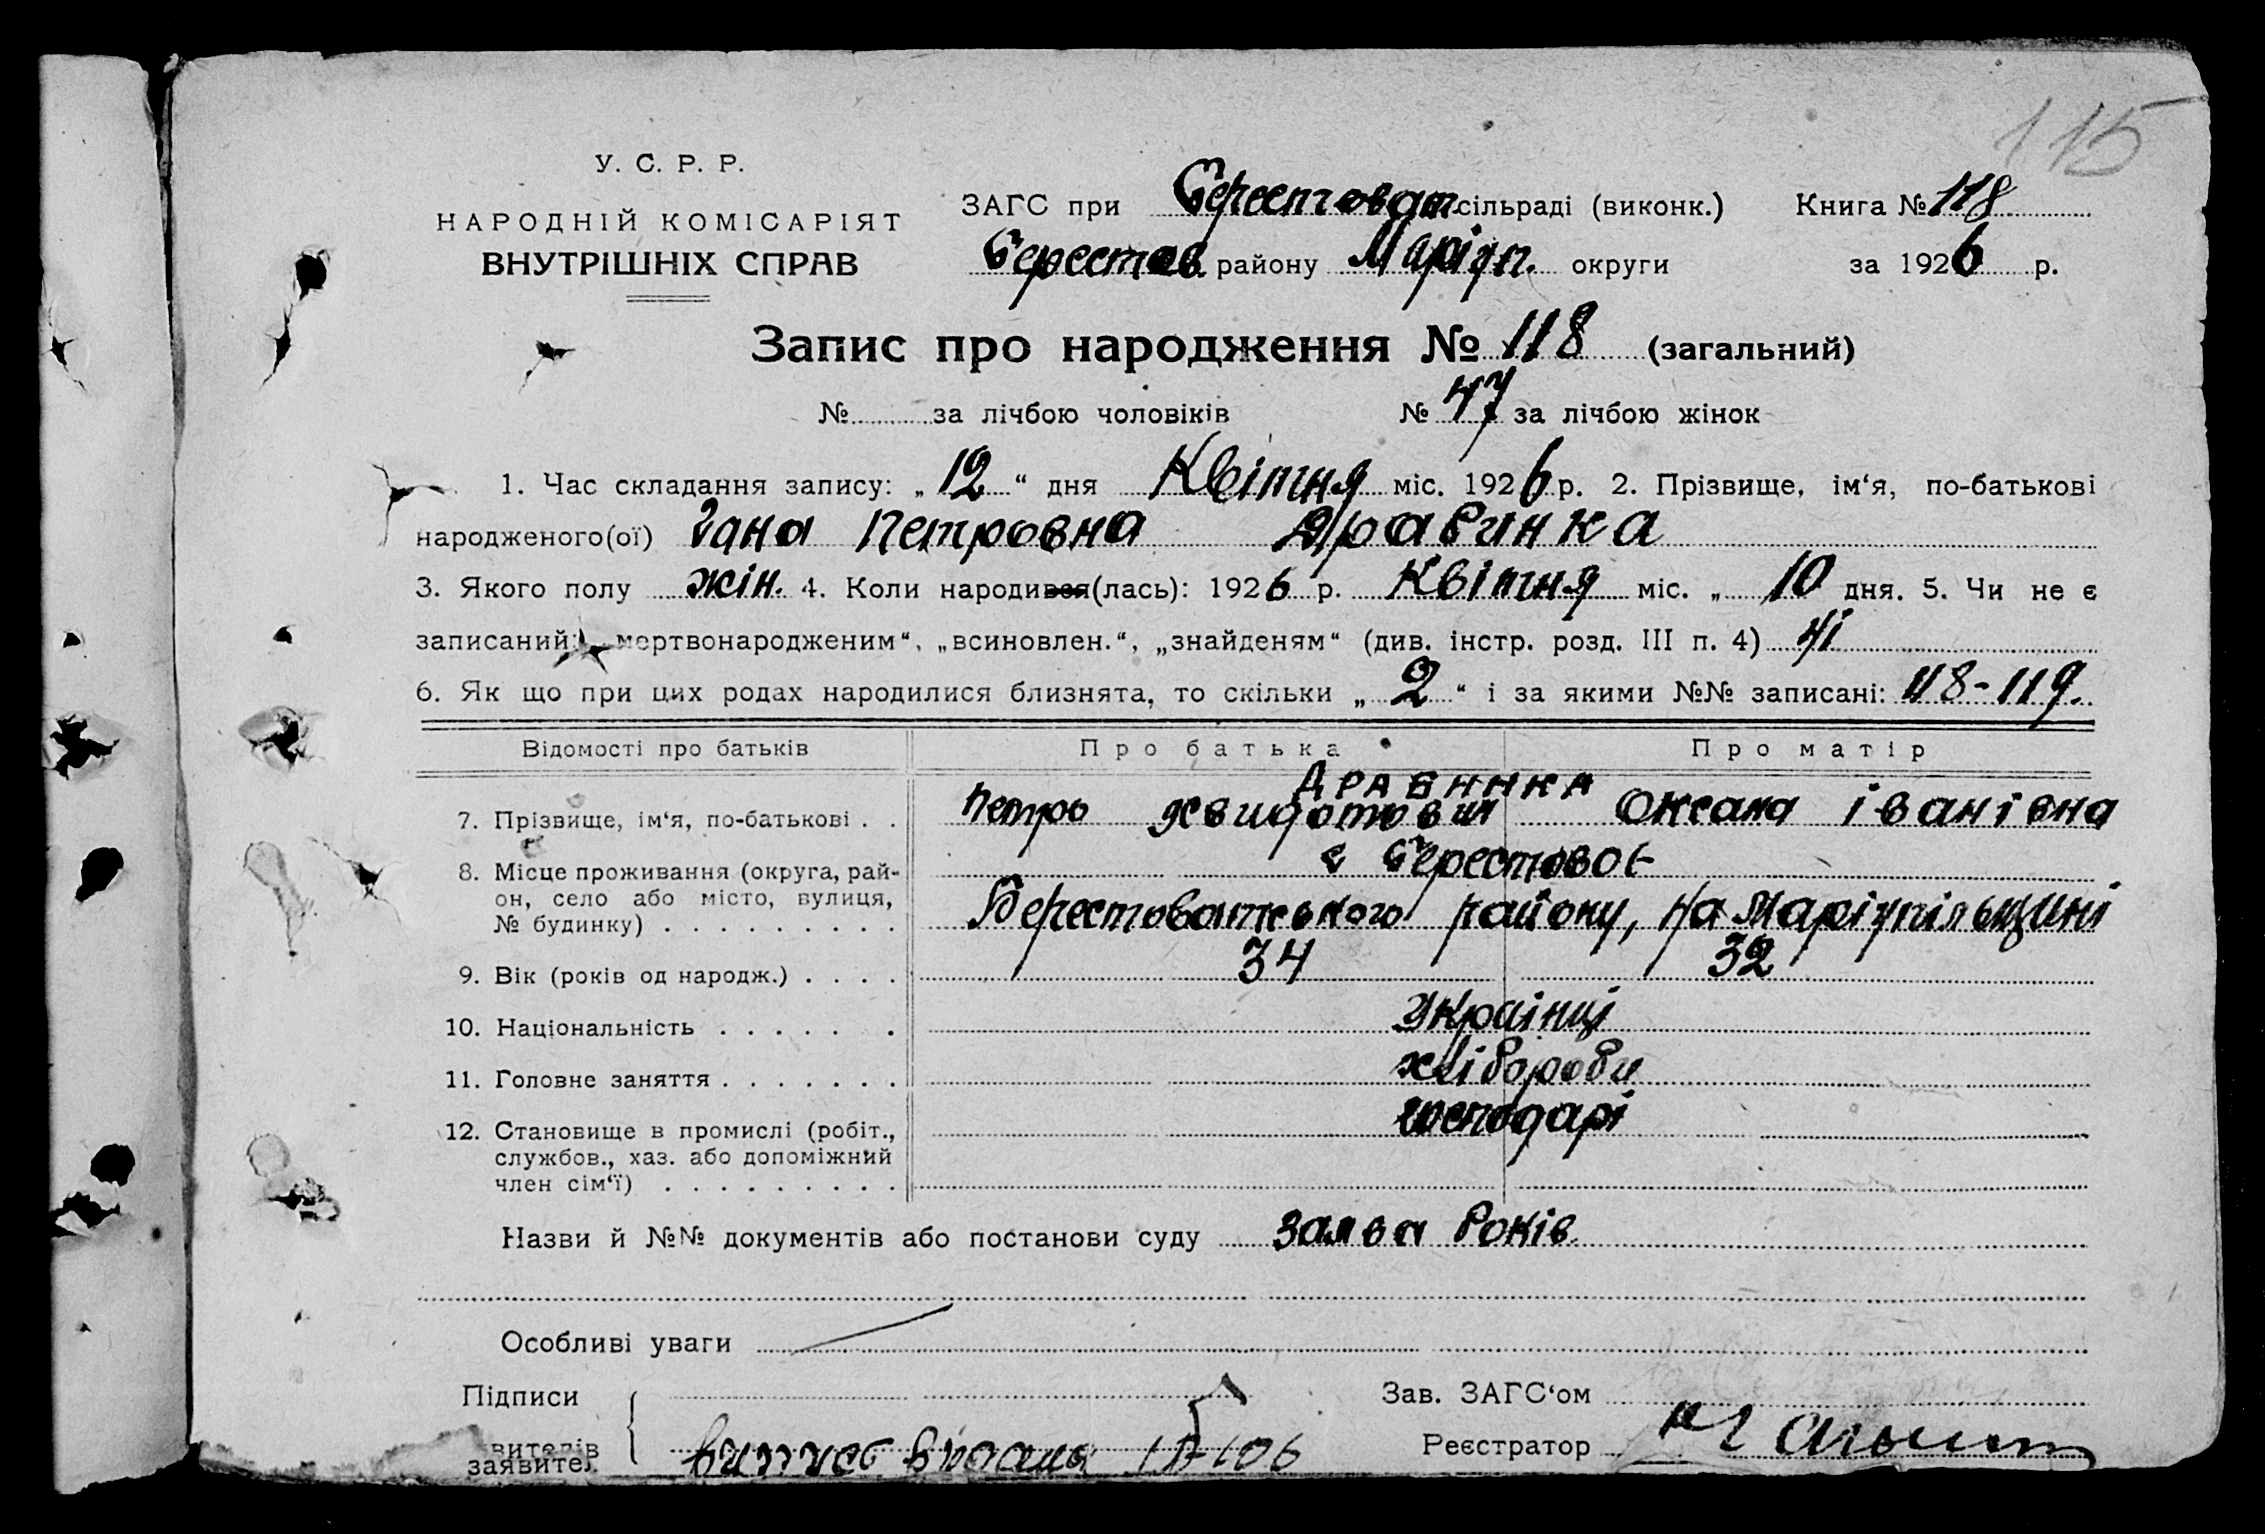 115
У. С. Р. Р.
НАРОДНІЙ КОМІСАРІЯТ
ВНУТРІШНІХ СПРАВ
ЗАГС при Берестоват. сільраді (виконк.) Книга № 118
Берестов. району Маріуп. округи за 1926 р.
Запис про народження № 118 (загальний)
№ за лічбою чоловіків № 47 за лічбою жінок
1. Час складання запису: „ 12 “ дня Квітня міс. 1926 р. 2. Прізвище, ім‘я, по-батькові
народженого(ої) Гана Петровна Драбинка
3. Якого полу жін. 4. Коли народився(лась): 1926 р. Квітня міс. „ 10 дня. 5. Чи не є
записаний: „мертвонародженим“, „всиновлен.“, „знайденям“ (див. інстр. розд. III п. 4) Ні
6. Як що при цих родах народилися близнята, то скільки „ 2 “ і за якими №№ записані: 118-119.
Відомості про батьків Про батька Про матір
ДРАБИНКА
7. Прізвище, ім‘я, по-батькові . . Петро Оксана Іванівна
8. Місце проживання (округа, рай- с Берестовое
он, село або місто, вулиця,
№ будинку) . . . . . . . . . Берестоватського району, на Маріупільщині
9. Вік (років од народж.) . . . . 34 32
10. Національність . . . . . . . Українці
11. Головне заняття . . . . . . . хлібороби
12. Становище в промислі (робіт., господарі
службов., хаз. або допоміжний
член сім‘ї) . . . . . . . . .
Назви й №№ документів або постанови суду Заява
Особливі уваги
Підписи Зав. ЗАГС‘ом
заявител. Реєстратор